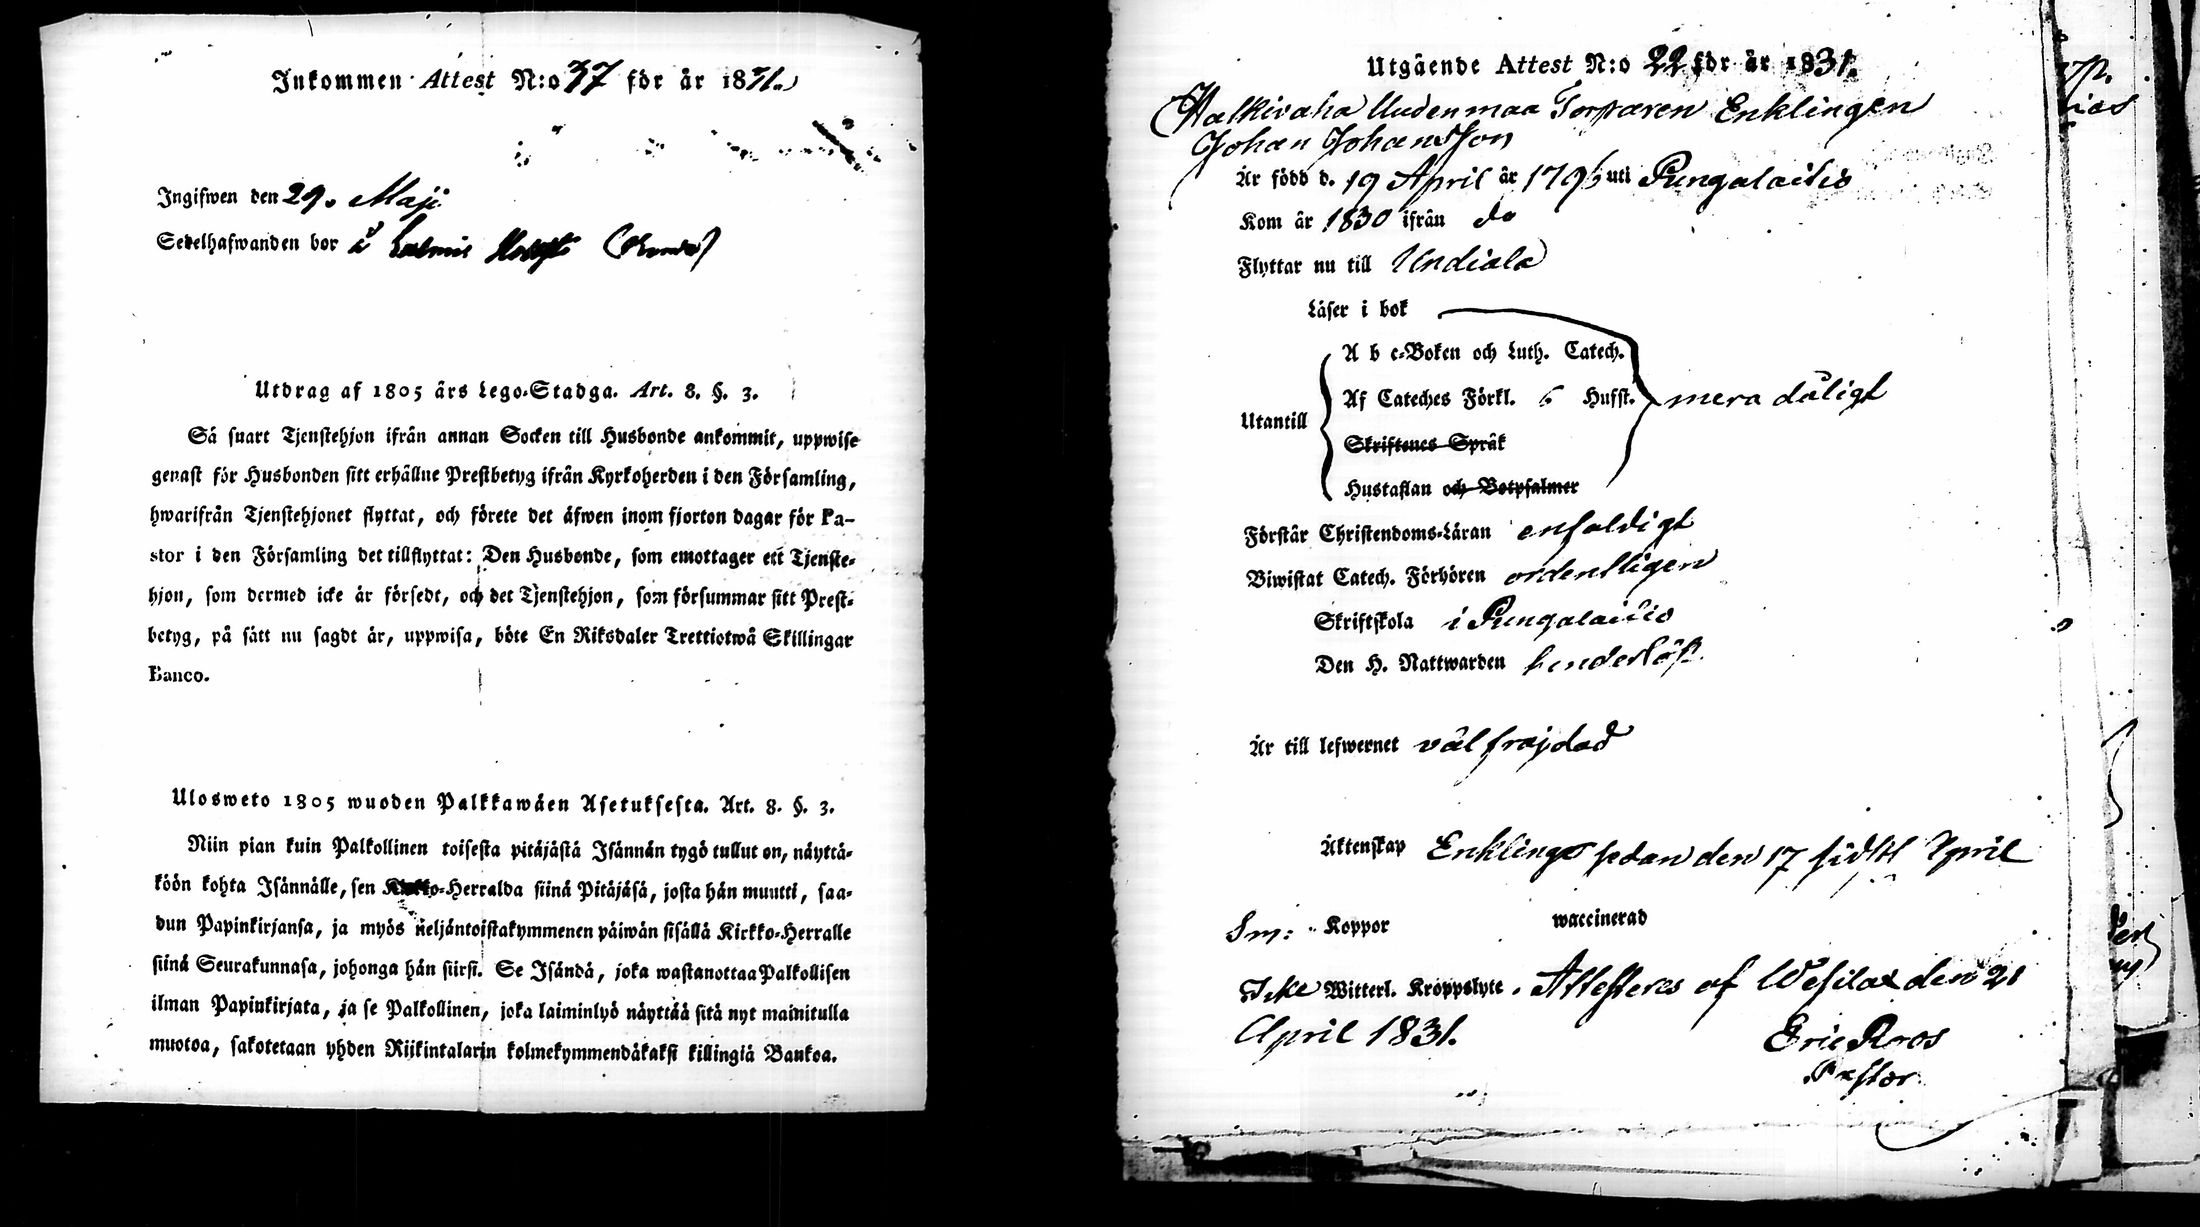 Inkommen Attest N:o 37 för år 1831.
Ingifwen den 29. Maji
Sedelhafwanden bor å
Utdrag af 1805 års Lego-Stadga. Art. 8. §. 3.
Så snart Tjenstehjon ifrån annan Socken till Husbonde ankommit, uppwise
genast för Husbonden sitt erhållne Prestbetyg ifrån Kyrkoherden i den Församling,
hwarifrån Tjenstehjonet flyttat, och förete det äfwen inom fjorton dagar för Pa-
stor i den Församling det tillflyttat: Den Husbonde, som emottager ett Tjenste-
hjon, som dermed icke är försedt, och det Tjenstehjon, som försummar sitt Prest-
betyg, på sätt nu sagdt är, uppwisa, böte En Riksdaler Trettiotwå Skillingar
Banco.
Ulosweto 1805 wuoden Palkkawäen Asetuksesta. Art. 8. §. 3.
Niin pian kuin Palkollinen toisesta pitäjästä Isännän tygö tullut on, näyttä-
köön kohta Isännälle, sen Kirkko-Herralda siinä Pitäjäsä, josta hän muutti, saa-
dun Papinkirjansa, ja myös neljäntoistakymmenen päiwän sisällä Kirkko-Herralle
siinä Seurakunnasa, johonga hän siirsi. Se Isändä, joka wastanottaa Palkollisen
ilman Papinkirjata, ja se Palkollinen, joka laiminlyö näyttää sitä nyt mainitulla
muotoa, sakotetaan yhden Rijkintalarin kolmekymmendäkaksi killingiä Bankoa.
Utgående Attest N:o 22 för år 1831.
Halkivaha Uudenmaa Torparen Enklingen
Johan Johansson
Är född d. 19 April år 1796 uti Pungalaitio
Kom år 1830 ifrån do
Flyttar nu till Urdiala
Läser i bok
A b c-Boken och Luth. Catech.
Af Cateches Förkl. 6 Hufst. mera dåligt
Utantill
Skriftenes Språk
Hustaflan och Botpsalmer
Förstår Christendoms-Läran enfaldigt
Biwistat Catech. Förhören ordentligen
Skriftskola i Pungalaitio
Den H. Nattwarden hinderlöst
Är till lefwernet väl frejdad
Äktenskap Enkling sedan den 17 sidstl April
Sm: Koppor waccinerad
Icke Witterl. Kroppslyte. Attesteras af Wesilax den 21
April 1831.
Eric Roos
Pastor